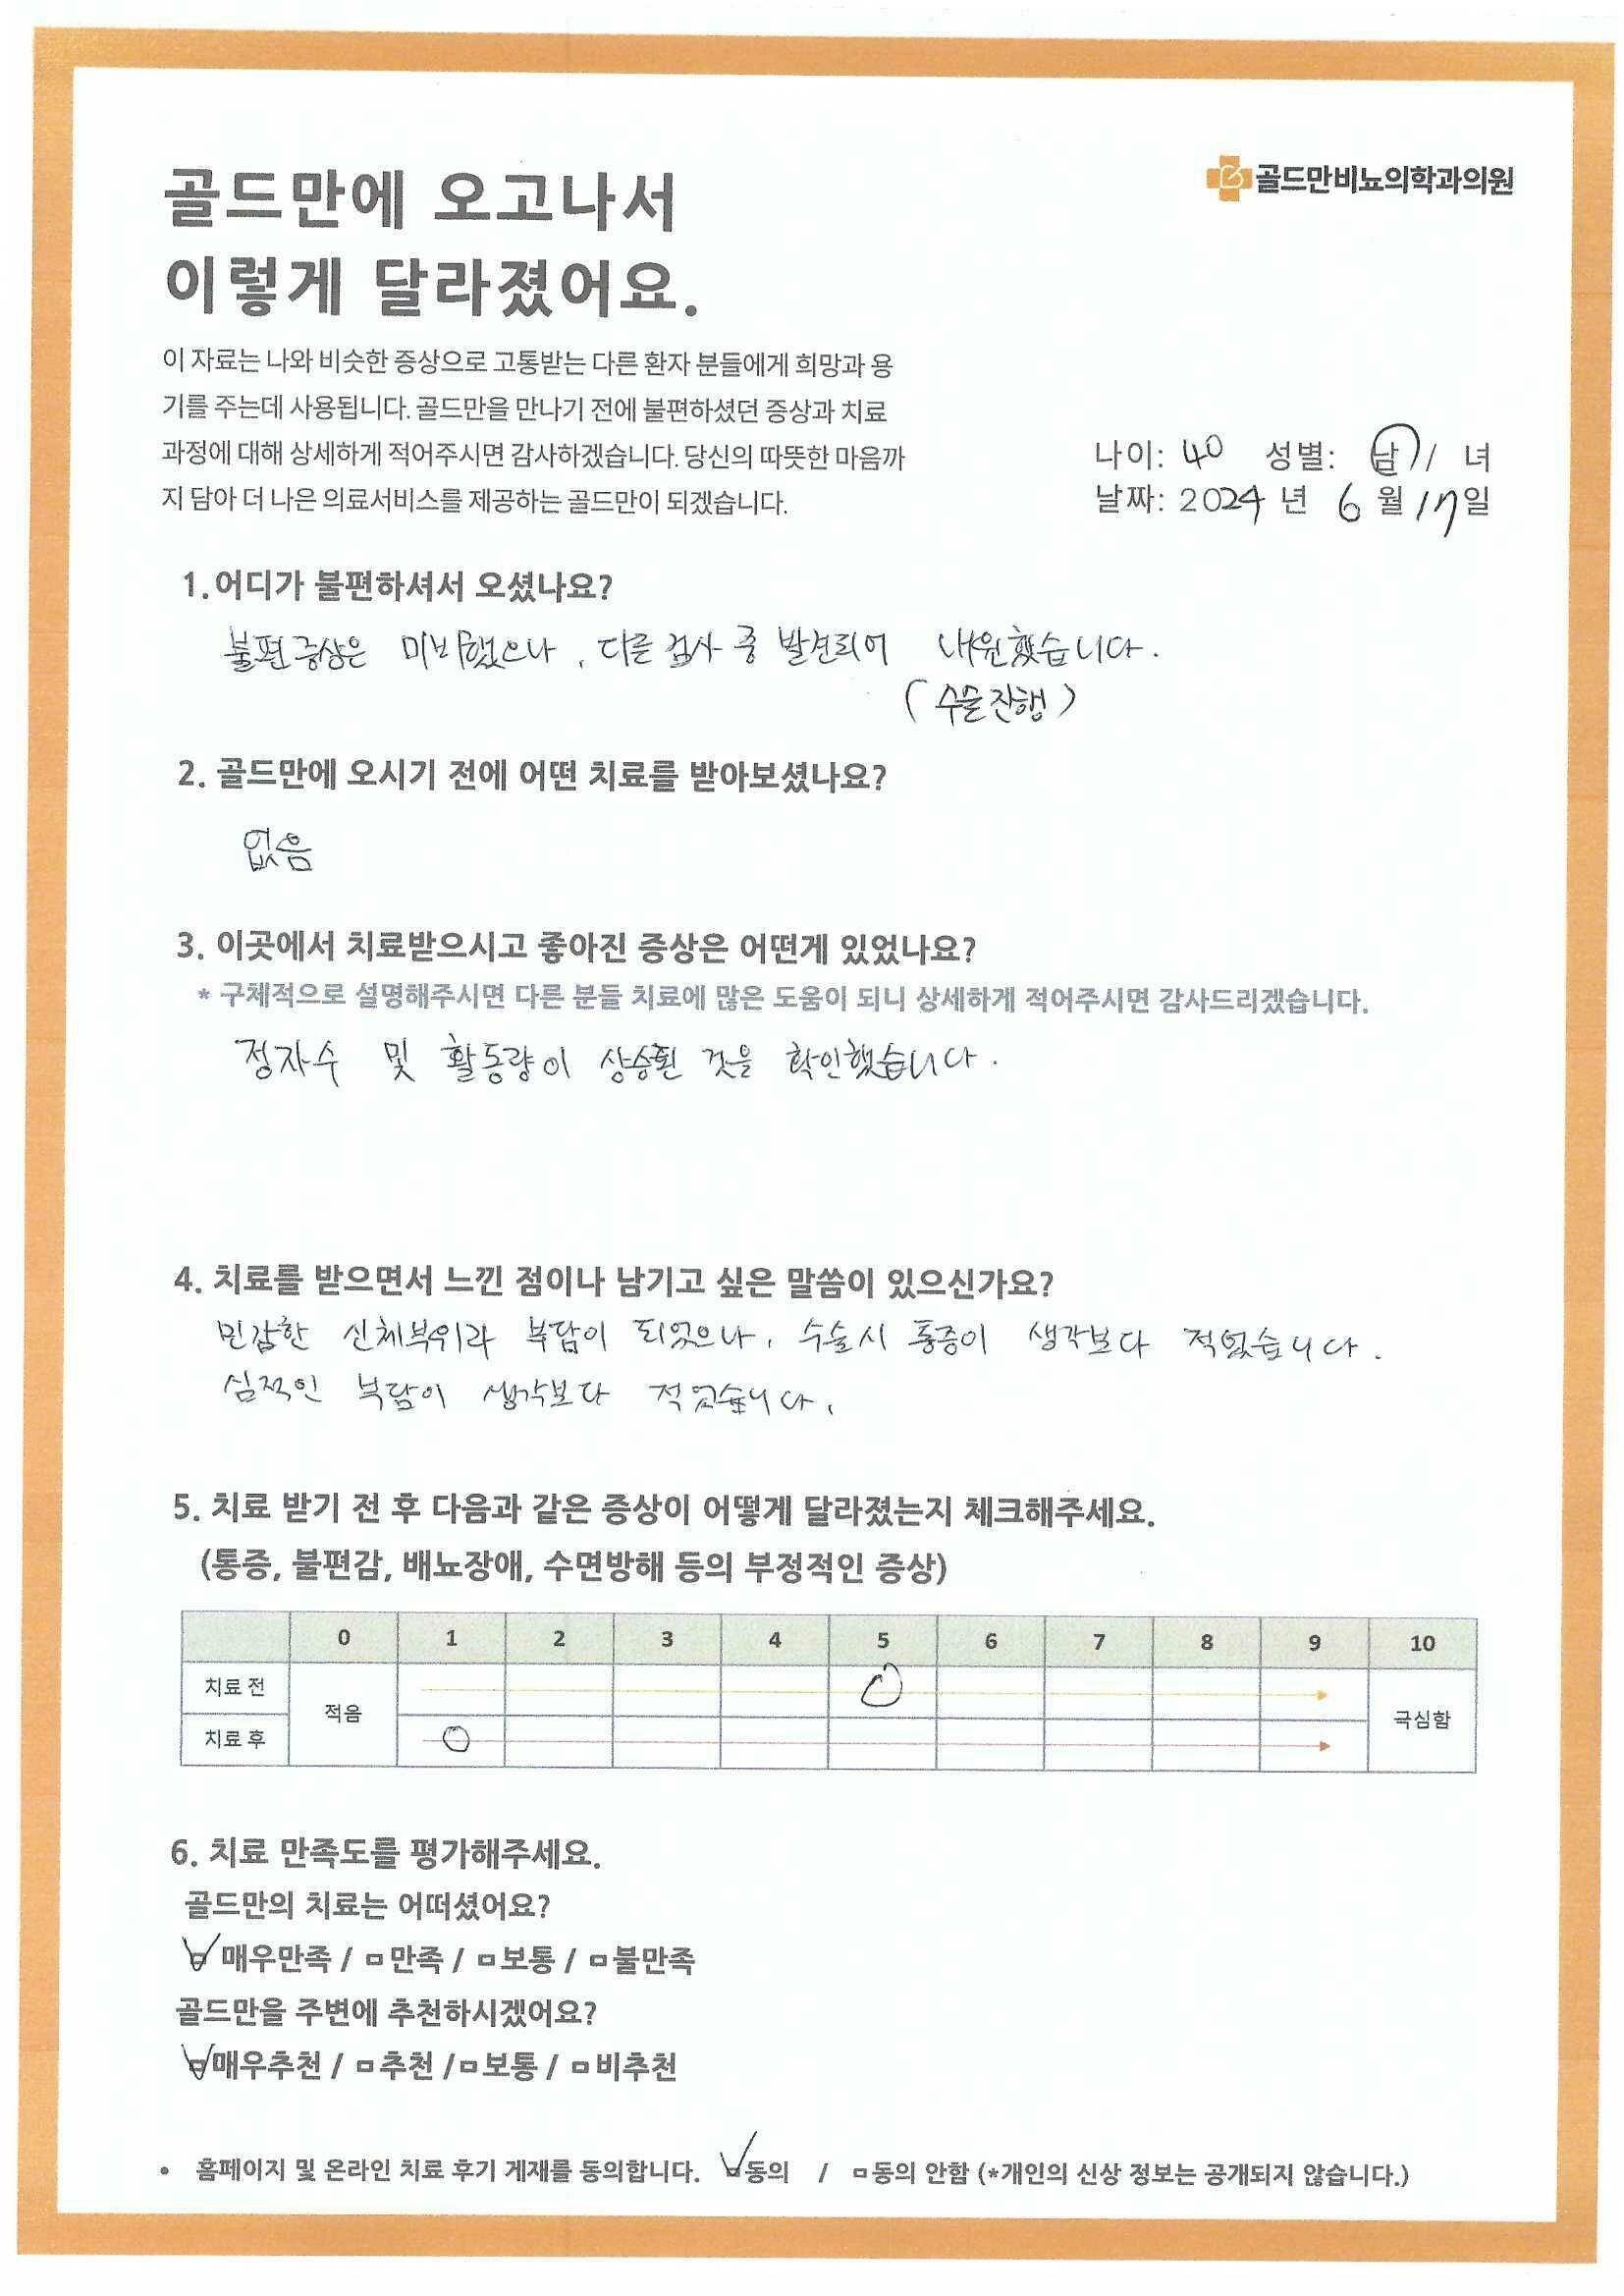 골드만에 오고나서
이렇게 달라졌어요.
골드만비뇨의학과의원
이 자료는 나와 비슷한 증상으로 고통받는 다른 환자 분들에게 희망과 용
기를 주는데 사용됩니다. 골드만을 만나기 전에 불편하셨던 증상과 치료
과정에 대해 상세하게 적어주시면 감사하겠습니다. 당신의 따뜻한 마음까
지 담아 더 나은 의료서비스를 제공하는 골드만이 되겠습니다.
나이: 40 성별: 남 / 녀
날짜: 2024 년 6 월 17 일
1. 어디가 불편하셔서 오셨나요?
불편증상은 미비했으나, 다른 검사 중 발견되어 내원했습니다.
(수술진행)
2. 골드만에 오시기 전에 어떤 치료를 받아보셨나요?
없음
3. 이곳에서 치료받으시고 좋아진 증상은 어떤게 있었나요?
* 구체적으로 설명해주시면 다른 분들 치료에 많은 도움이 되니 상세하게 적어주시면 감사드리겠습니다.
정자수 및 활동량이 상승된 것을 확인했습니다.
4. 치료를 받으면서 느낀 점이나 남기고 싶은 말씀이 있으신가요?
민감한 신체부위라 부담이 되었으나, 수술시 통증이 생각보다 적었습니다.
심적인 부담이 생각보다 적었습니다.
5. 치료 받기 전 후 다음과 같은 증상이 어떻게 달라졌는지 체크해주세요.
(통증, 불편감, 배뇨장애, 수면방해 등의 부정적인 증상)
0 1 2 3 4 5 6 7 8 9 10
치료 전
적음
극심함
치료 후
6. 치료 만족도를 평가해주세요.
골드만의 치료는 어떠셨어요?
매우만족 / □ 만족 / □ 보통 / □ 불만족
골드만을 주변에 추천하시겠어요?
매우추천 / □ 추천 / □ 보통 / □ 비추천
• 홈페이지 및 온라인 치료 후기 게재를 동의합니다. 동의 / □ 동의 안함 (*개인의 신상 정보는 공개되지 않습니다.)